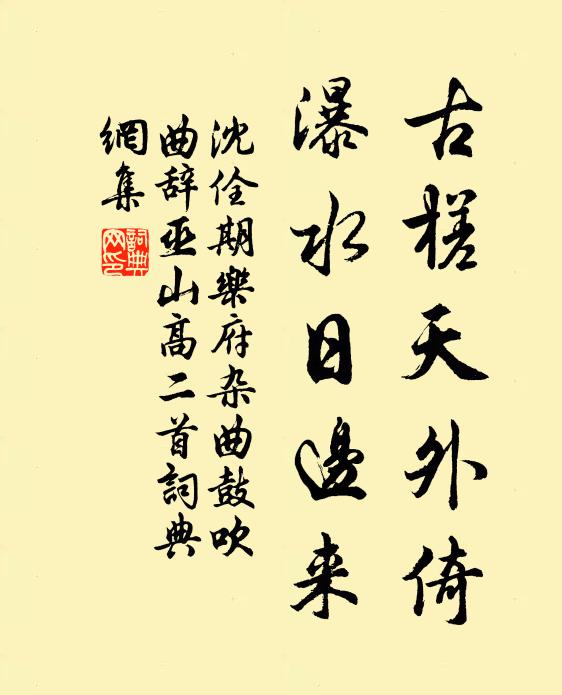 古槎天外倚
瀑水日邊来
沈佺期樂府杂曲鼓吹
曲辞巫山高二首詞典
網集
詞典
网印